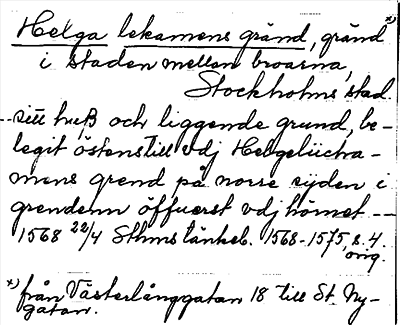 Helga lekamens gränd, gränd *)
i staden mellan broarna,
Stockholms stad.
--sitt huß och liggende grund, be-
legit östenstill vdj Helgelücha-
mens grend på norre sijden i
grendenn öffuerst vdj hörnet --
1568 22/4 Sthms tänkeb. 1568-1575, s. 4.
orig.
*) från Västerlånggatan 18 till St. Ny-
gatan.